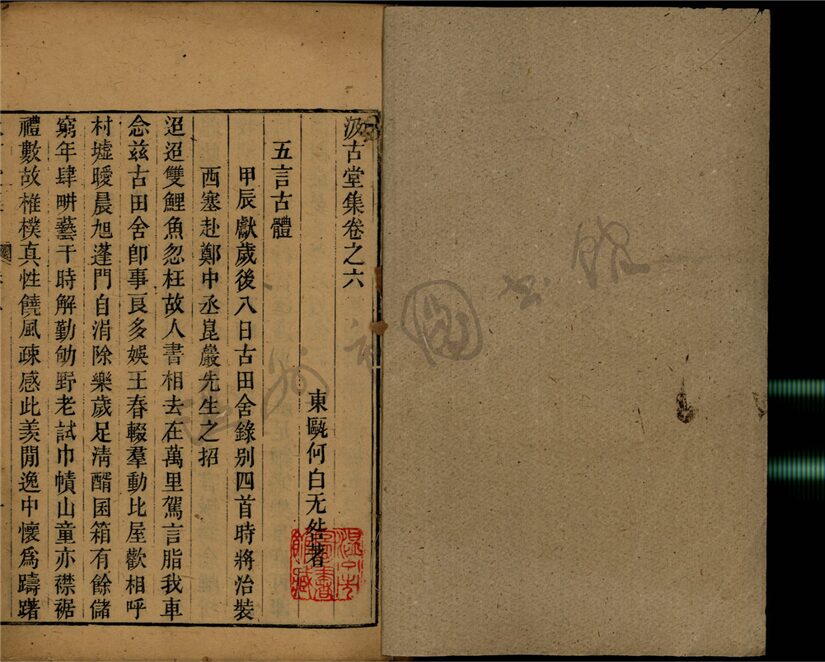 汲古堂集卷之六
東甌何白无咎著
五言古體
甲辰獻歲後八日古田舍錄别四首時將治裝
西塞赴鄭中丞崑巖先生之招
迢迢雙鯉魚忽枉故人書相去在萬里駕言脂我車
念兹古田舍卽事良多娛王春輟羣動比屋歡相呼
村墟曖晨旭蓬門自涓除樂歲足淸醑囷箱有餘儲
窮年肆畊藝干時解勤劬野老試巾幘山童亦襟裾
禮數故椎樸真性饒風疎感此羡閒逸中懷爲躊躇